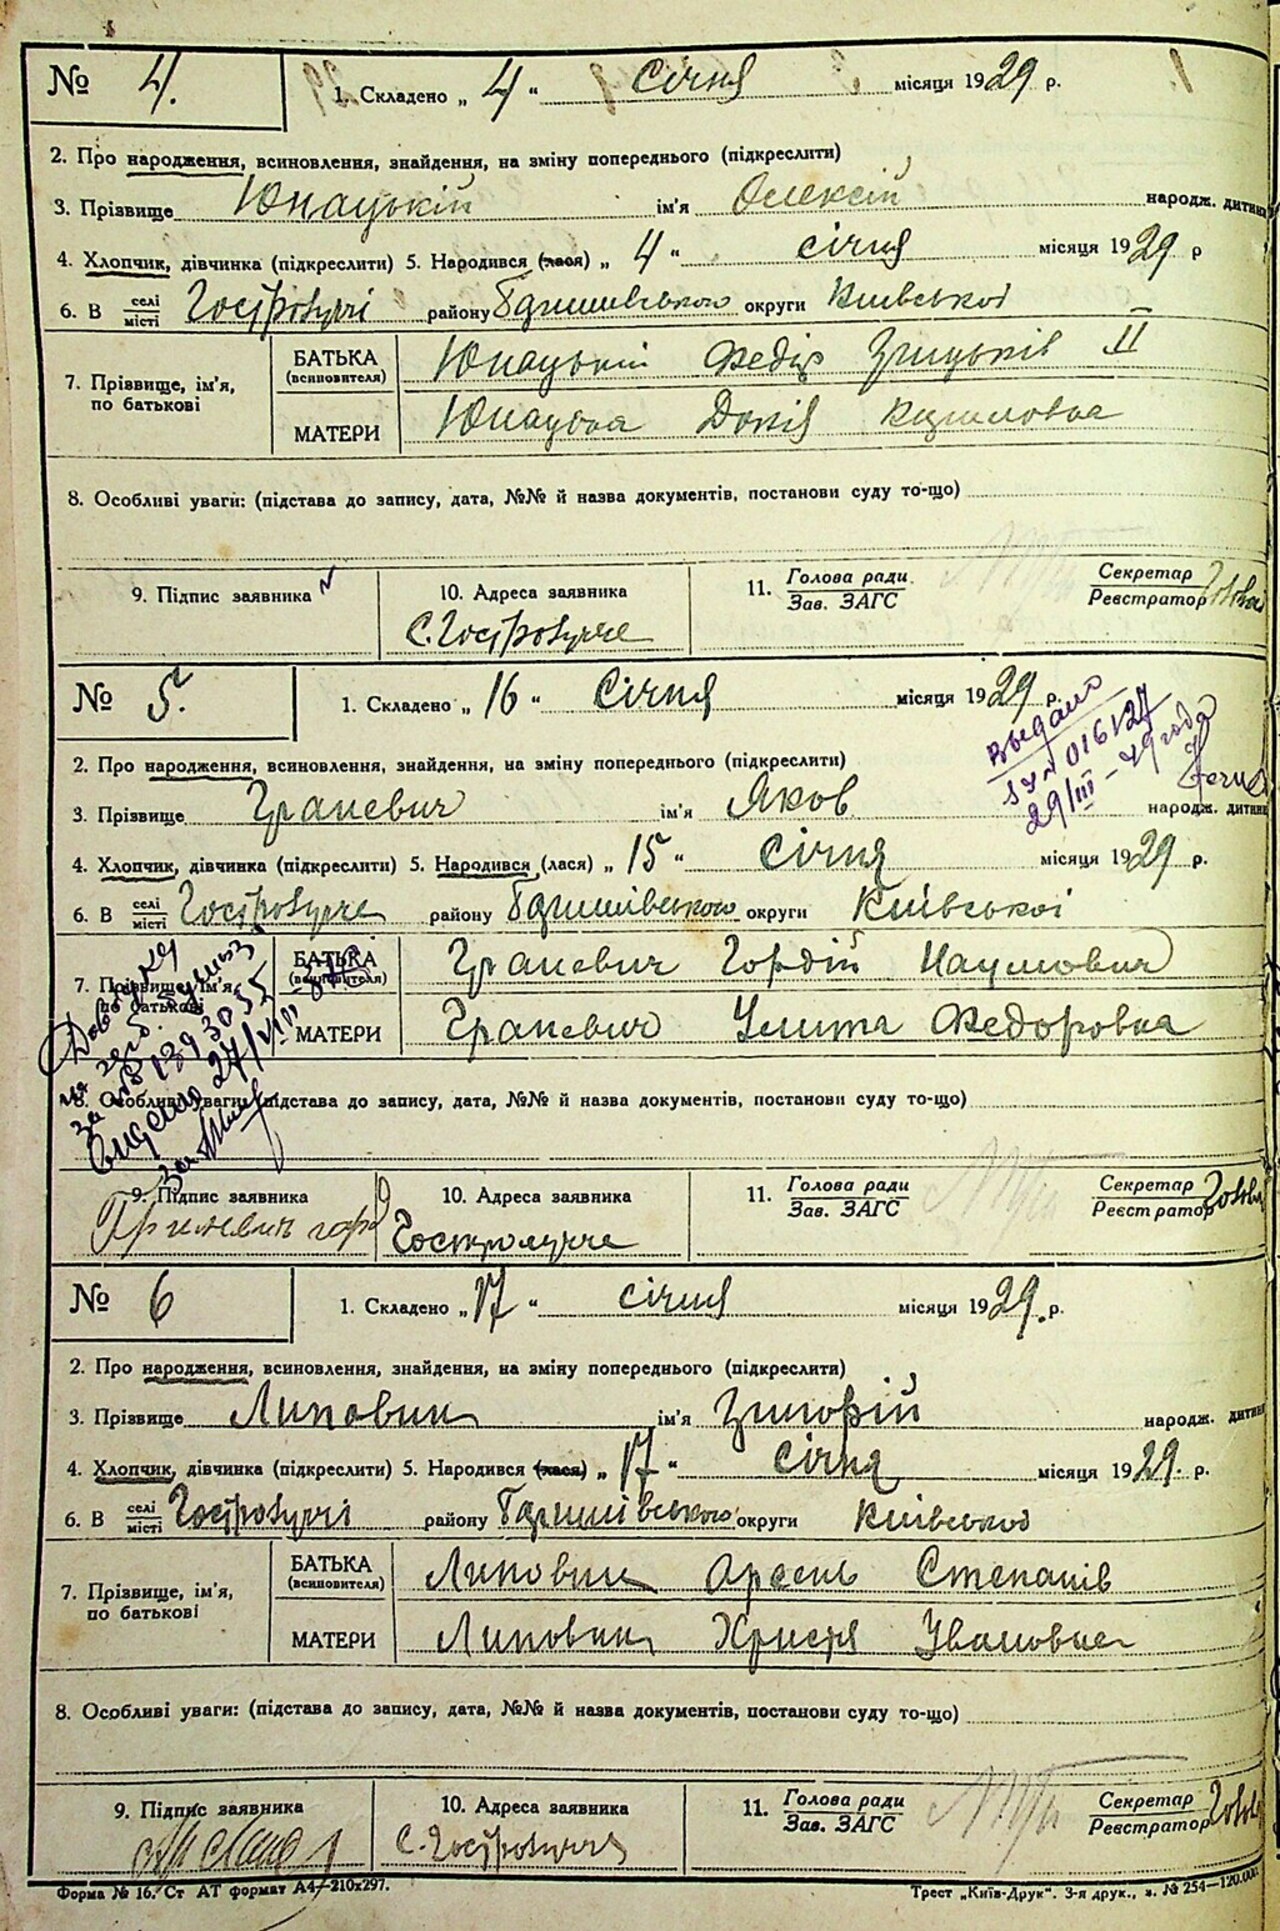 № 4. 1. Складено „ 4 “ Січня місяця 1929 р.
2. Про народження, всиновлення, знайдення, на зміну попереднього (підкреслити)
3. Прізвище Юнацькій ім'я Олексій народж. дитини
4. Хлопчик, дівчинка (підкреслити) 5. Народився (лася) „ 4 “ січня місяця 1929 р
6. В селі місті Гостролуччі району Баришівського округи Київської
7. Прізвище, ім'я, по батькові
БАТЬКА (всиновителя) Юнацькій Федір Грицьків II
МАТЕРИ Юнацька Докія
8. Особливі уваги: (підстава до запису, дата, №№ й назва документів, постанови суду то-що)
9. Підпис заявника 10. Адреса заявника 11. Голова ради Зав. ЗАГС Секретар Реєстратор
с. Гостролучче
№ 5. 1. Складено „ 16 “ Січня місяця 1929 р.
Выдано
016127
29/III - 79 года
2. Про народження, всиновлення, знайдення, на зміну попереднього (підкреслити)
3. Прізвище Граневич ім'я Яков народж. дитини
4. Хлопчик, дівчинка (підкреслити) 5. Народився (лася) „ 15 “ Січня місяця 1929 р.
6. В селі місті Гостролучче району Баришівського округи Київської
7. Прізвище, ім'я, по батькові
БАТЬКА (всиновителя) Граневич Гордій Наумович
МАТЕРИ Граневич Улита Федоровна
Довідку
за № 139303
видано 27/VIII
8. Особливі уваги: (підстава до запису, дата, №№ й назва документів, постанови суду то-що)
9. Підпис заявника 10. Адреса заявника 11. Голова ради Зав. ЗАГС Секретар Реєстратор
Гостролучче
№ 6 1. Складено „ 17 “ січня місяця 1929. р.
2. Про народження, всиновлення, знайдення, на зміну попереднього (підкреслити)
3. Прізвище Липовик ім'я Григорій народж. дитини
4. Хлопчик, дівчинка (підкреслити) 5. Народився (лася) „ 17 “ Січня місяця 1929. р.
6. В селі місті Гостролуччі району Баришівського округи Київської
7. Прізвище, ім'я, по батькові
БАТЬКА (всиновителя) Липовик Арсень Степанів
МАТЕРИ Липовик Христя Івановна
8. Особливі уваги: (підстава до запису, дата, №№ й назва документів, постанови суду то-що)
9. Підпис заявника 10. Адреса заявника 11. Голова ради Зав. ЗАГС Секретар Реєстратор
с. Гостролучча
Форма № 16. Ст АТ формат А4—210x297. Трест „Київ-Друк“. 3-я друк., з. № 254—120.000.